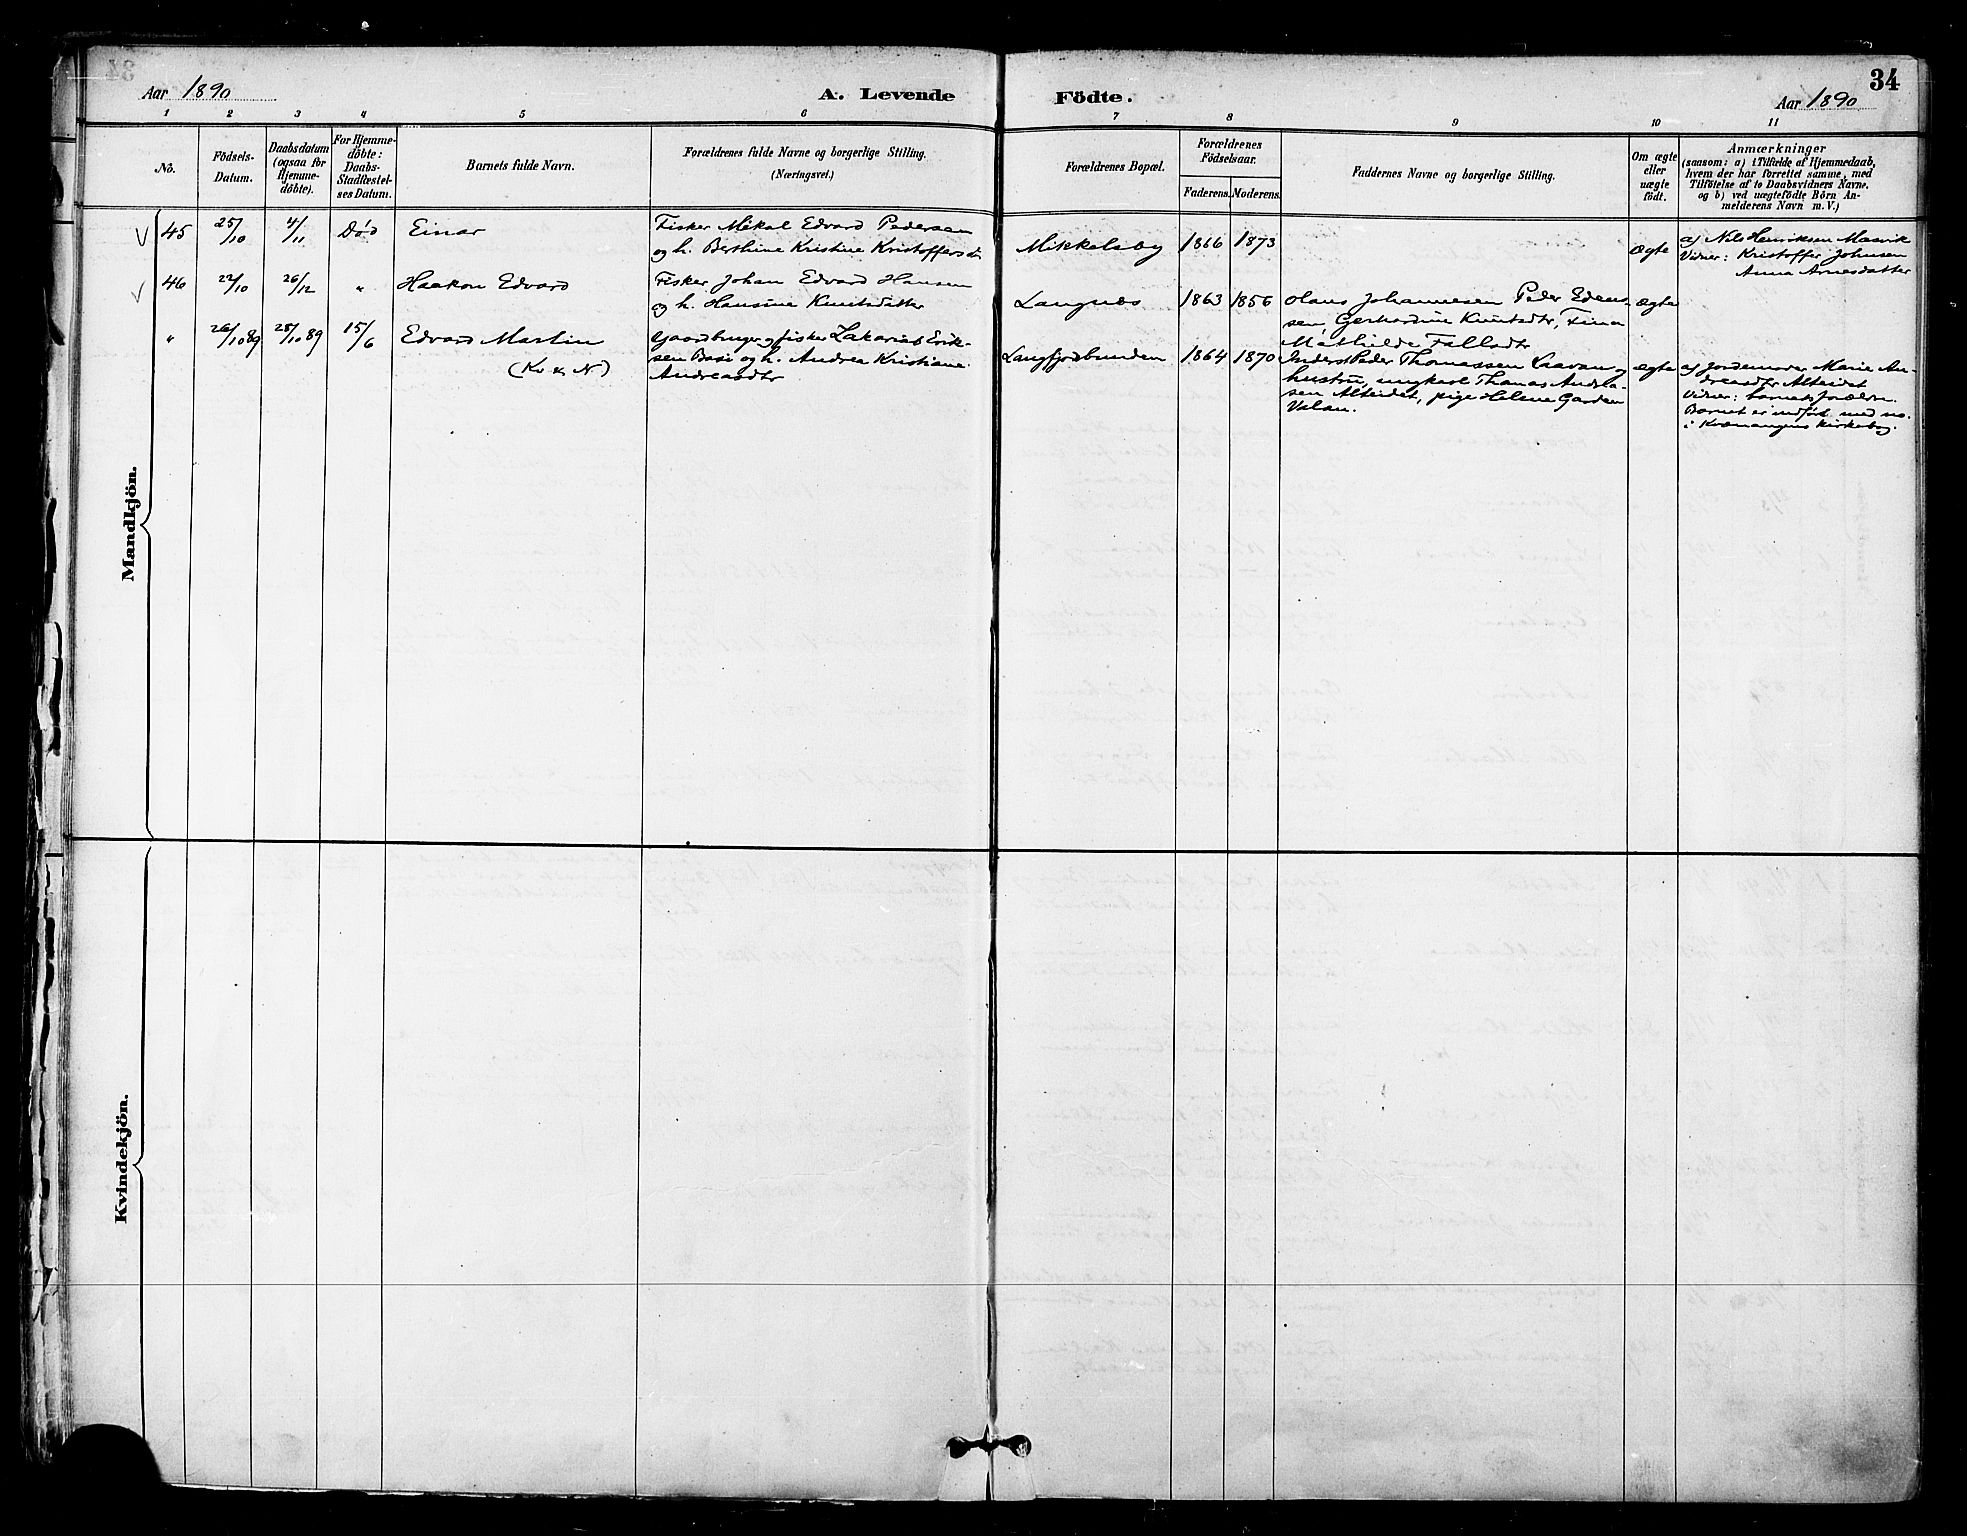 34
Aar 1890
A. Levende Födte.
Aar 1890
1 2 3 4 5 6 7 8 9 10 11
No.
Födsels-
Datum.
Daabsdatum
(ogsaa for
Hjemme-
döbte).
For Hjemme-
döbte:
Daabs-
Stadfæstel-
ses Datum.
Barnets fulde Navn.
Forældrenes fulde Navne og borgerlige Stilling.
(Næringsvei.)
Forældrenes Bopæl.
Forældrenes
Födselsaar.
Faderens. Moderens.
Faddernes Navne og borgerlige Stilling.
Om ægte
eller
uægte
födt.
Anmærkninger
(saasom: a) i Tilfælde af Hjemmedaab,
hvem der har forrettet samme, med
Tilföielse af to Daabsvidners Navne.
og b) ved uægtefödte Börn An-
melderens Navn m. V.)
Mandkjön.
45 25/10 4/11 Død Einar
Fisker Mikal Edvard Pedersen
og h. Berthine Kristine Kristoffersdt
Mikkelsby 1866 1873
ægte
a) Nils Henriksen Maarvik
Vidner: Kristoffer Johnsen
Anna Arnesdatter
46 22/10 26/12 " Haakon Edvard
Fisker Johan Edvard Hansen
og h. Hansine Knutsdatter
Langnes 1863 1856
Olaus Johannesen Peder Edens-
sen, Gerhardine Knutsdtr, Fina
Mathilde Fallsdtr
ægte
" 26/10 89 28/10 89 15/6 Edvard Martin
(Kv & N)
Gaardbruger og fisker Zakarias Erik-
sen Basi og h. Andrea Kristiane
Andreasdtr
Langfjordbunden 1864 1870
Inderst Peder Thomassen Laavan og
hustru, ungkarl Thomas Andrea-
sen Alteidet, pige Helene Garden
Valan.
ægte
a) Jordemoder Marie An-
dreasdtr Alteidet
Vidner: barnets forældre.
Barnet er indført med no.
i Kvænangens kirkebog.
Kvindekjön.